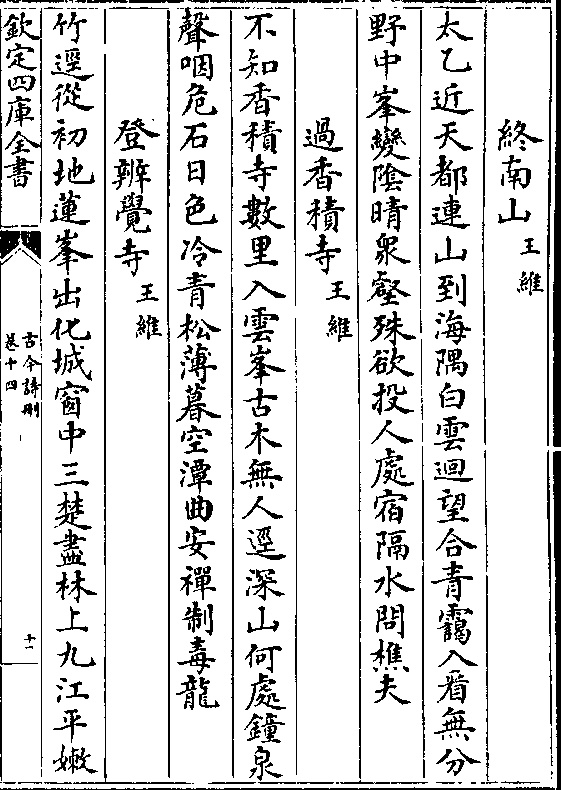 終南山 王維
太乙近天都連山到海隅白雲迴望合青靄入看無分
野中峯變隂晴衆壑殊欲投人處宿隔水問樵夫
過香積寺 王維
不知香積寺數里入雲峯古木無人逕深山何處鐘泉
聲咽危石日色冷青松薄暮空潭曲安禪制毒龍
登辨覺寺 王維
竹逕從初地蓮峯出化城窗中三楚盡林上九江平嫩
欽定四庫全書
古今詩刪
卷十四
十一